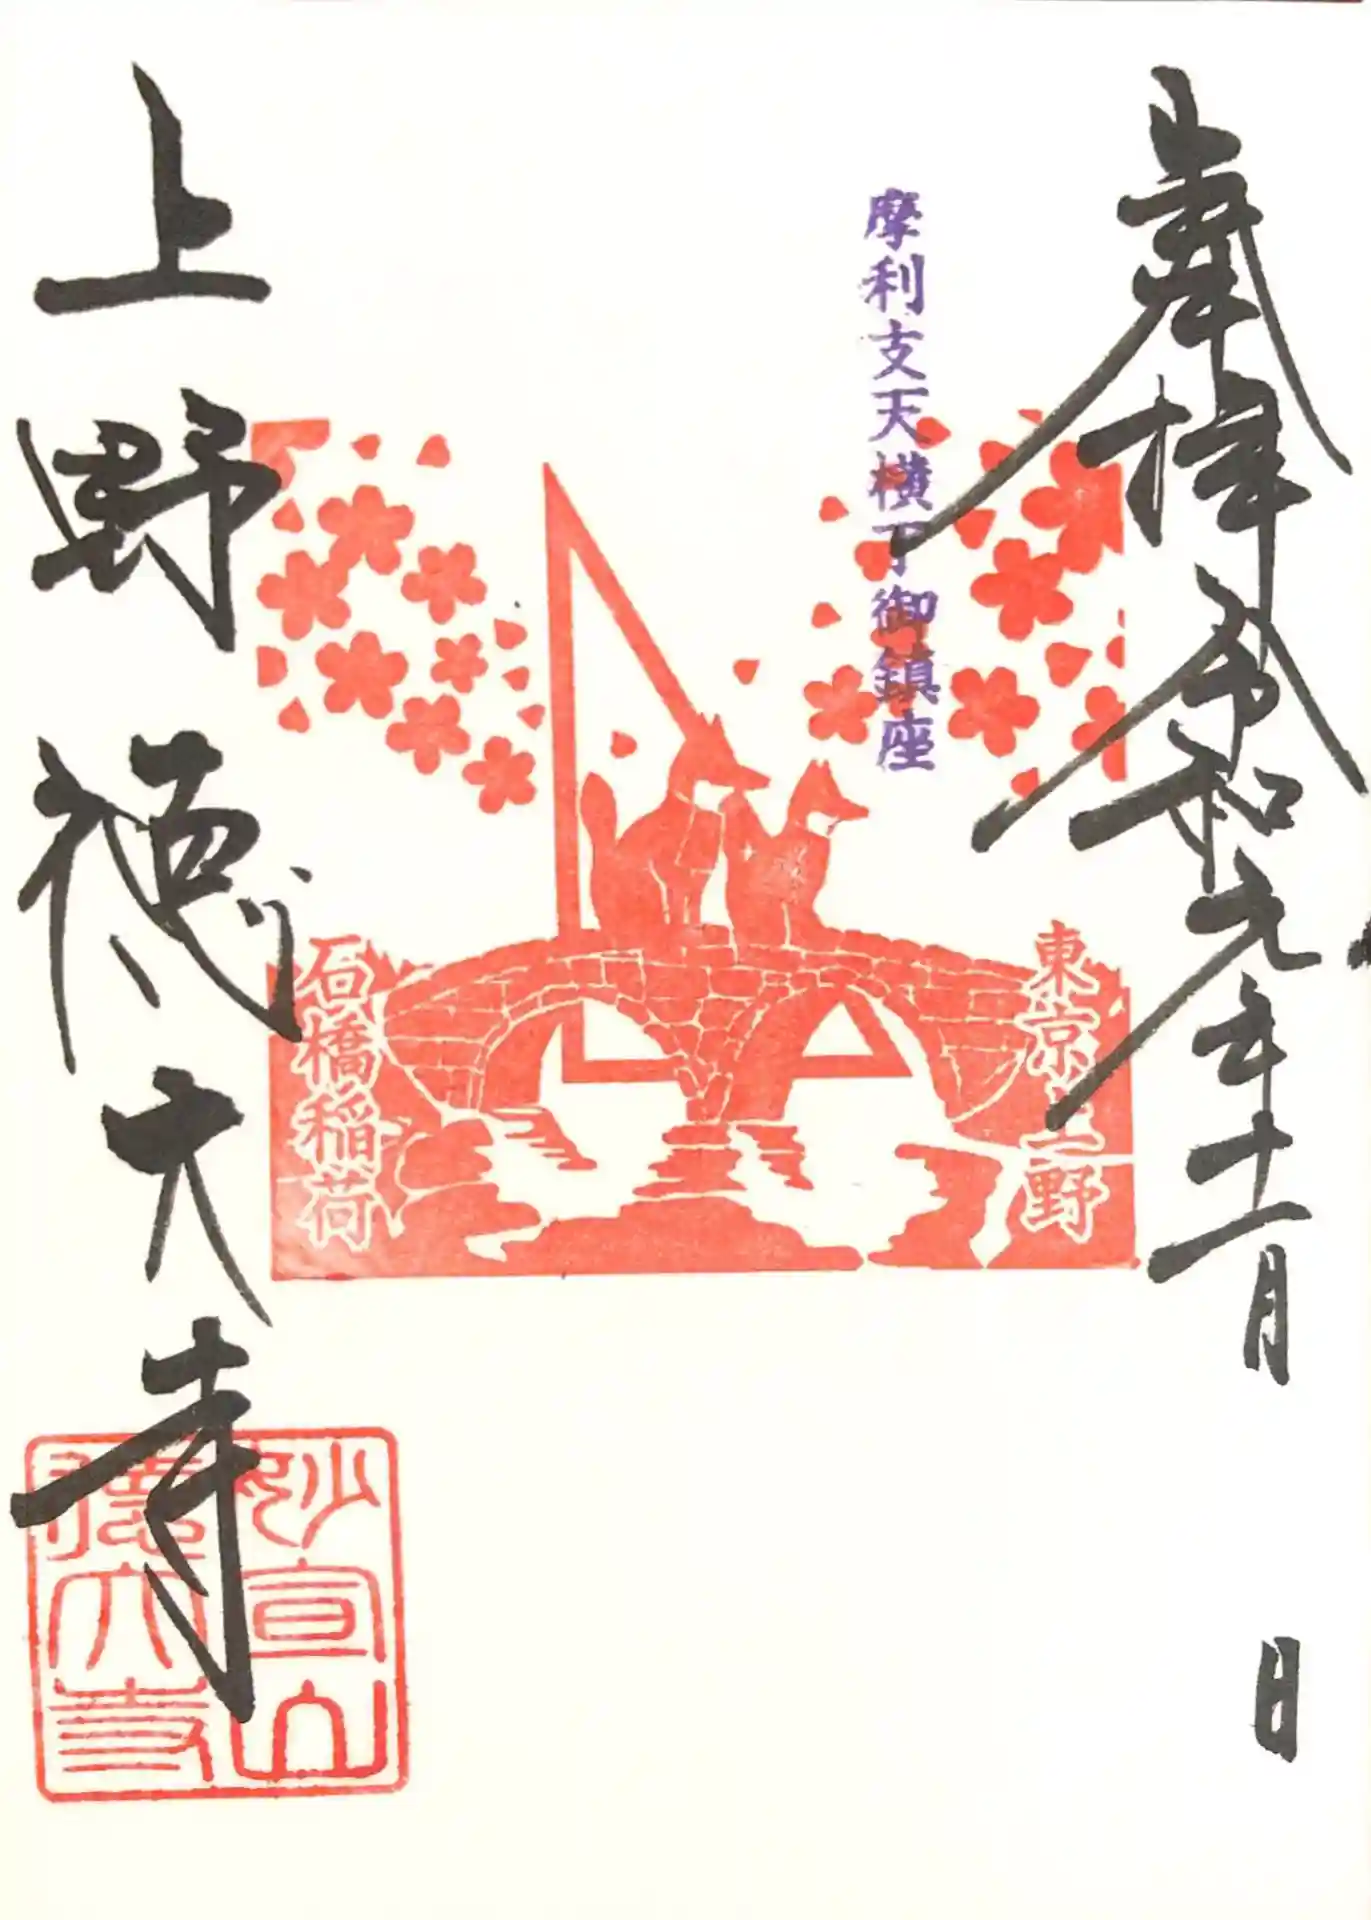 奉拝 令和元年十一月 日
摩利支天横丁御鎮座
東京上野
石橋稲荷
上野 徳大寺
妙宣山
徳大寺